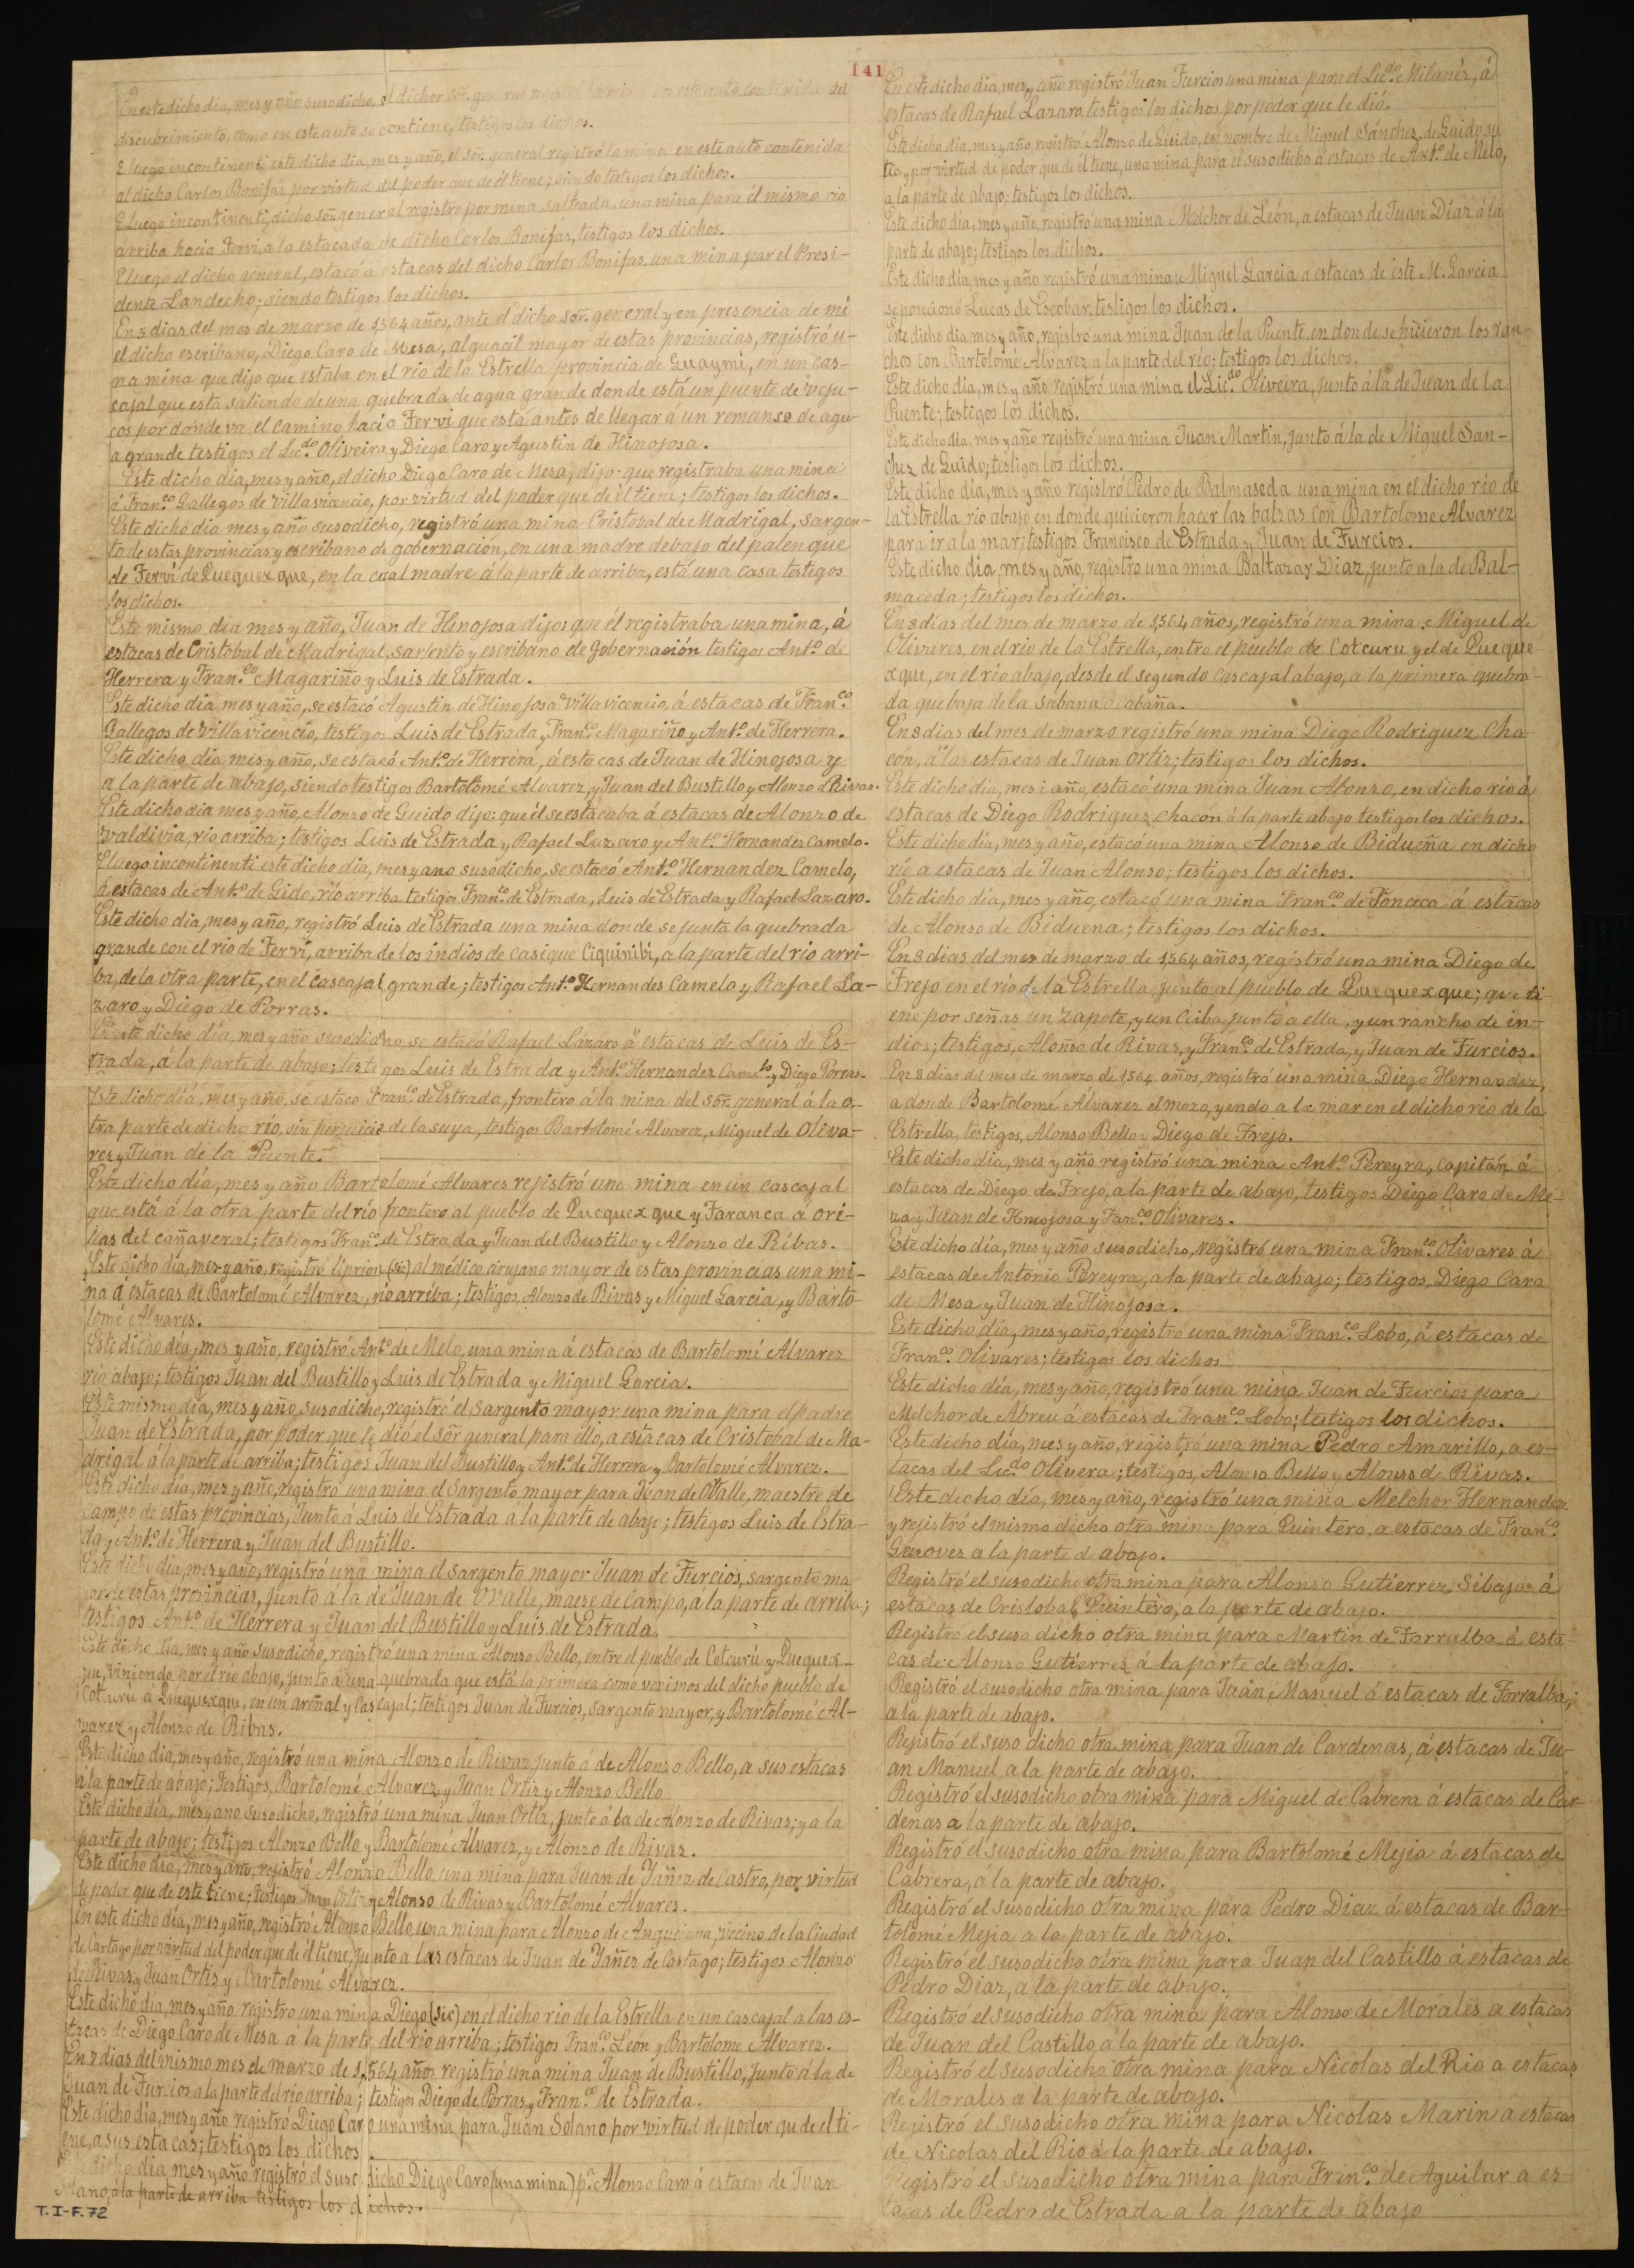 141
En este dicho dia, mes y año susodicho, el dichor sor. general registró la mina en este auto contenida del
descubrimiento, como en este auto se contiene, testigos los dichos.
E luego incontinenti este dicho dia, mes y año, el sor. general registró la mina en este auto contenida
al dicho Carlos Bonifas por virtud del poder que de él tiene; siendo testigos los dichos.
E luego incontinenti, dicho sor. general registro por mina salteada, una mina para él mismo rio
arriba hacia Fervi, a la estacada de dicho Carlos Bonifas, testigos los dichos.
E luego el dicho general, estacó á estacas del dicho Carlos Bonifas, una mina par el Presi-
dente Landecho; siendo testigos los dichos.
En 5 dias del mes de marzo de 1,564 años, ante el dicho sor. general y en presencia de mi
el dicho escribano, Diego Caro de Mesa, alguacil mayor de estas provincias, registró u-
na mina que dijo que estaba en el rio de la Estrella provincia de Guaymi, en un cas-
cajal que está saliendo de una quebrada de agua grande donde está un puente de veju-
cos por donde va el camino hacia Fervi que está antes de llegar á un remanso de agu-
a grande testigos el Lic.do Oliveira y Diego Caro y Agustin de Hinojosa.
Este dicho dia, mes y año, el dicho Diego Caro de Mesa, dijo: que registraba una mina
á Fran.co Gallegos de Villaviancio, por virtud del poder que de él tiene; testigos los dichos.
Este dicho dia mes y año susodicho, registró una mina Cristobal de Madrigal, sargen-
to de estas provincias y escribano de gobernación, en una madre debajo del palenque
de Fervi de Quequexque, en la cual madre á la parte de arriba, está una casa testigos
los dichos.
Este mismo dia mes y año, Juan de Henojosa dijos que él registraba una mina, á
estacas de Cristobal de Madrigal, sariento y escribano de gobernasión testigos Ant.o de
Herrera y Fran.co Magariño y Luis de Estrada.
Este dicho dia mes y año, se estacó Agustin de Hinojosa Villavicencio, á estacas de Fran.co
Gallegos de Villavicencio, testigos Luis de Estrada, Fran.co Magariño y Ant.o de Herrera.
Este dicho dia mes y año, se estacó Ant.o de Herrera, á estacas de Juan de Hinojosa y
a la parte de abajo, siendo testigos Bartolomé Alvarez, y Juan del Bustillo y Alonzo d'Rivas.
Este dicho dia mes y año, Alonzo de Guido dijo: que él se estacaba á estacas de Alonzo de
Valdivia, rio arriba; testigos Luis de Estrada y Rafael Lazaro y Ant.o Hernandes Camelo.
E luego incontinenti este dicho dia, mes y ano susodicho, se estacó Ant.o Hernandez Camelo,
á estacas de Ant.o de Gido, río arriba testigos Fran.co de Estrada, Luis de Estrada y Rafael Lazaro.
Este dicho dia, mes y año, registró Luis de Estrada una mina donde se junta la quebrada
grande con el rio de Fervi, arriba de los indios de casique Ciquinibi, a la parte del rio arri-
ba, de la otra parte, en el cascajal grande; testigos Ant.o Hernandes Camelo y Rafael La-
zaro y Diego de Porras.
En este dicho día, mes y año susodicho se estacó Rafael Lázaro á estacas de Luis de Es-
trada, á la parte de abajo; testigos Luis de Estrada y Ant.o Hernandez Camelo y Diego Porras.
Este dicho día, mes y año, se estaco Fran.co de Estrada, frontero á la mina del sor. general á la o-
tra parte de dicho río, sin perjuicio de la suya, testigos Bartolomé Alvarez, Miguel de Oliva-
res y Juan de la Puente.
Este dicho día, mes y año Bartolomé Alvares rejistró una mina en un cascajal
que está á la otra parte del río frontero al pueblo de Quequexque y Faranca á ori-
llas del cañaveral; testigos Fran.co de Estrada y Juan del Bustillo y Alonzo de Ribas.
Este dicho dia, mes y año, registro liprion (sic) al médico cirujano mayor de estas provincias una mi-
na á estacas de Bartolomé Alvarez, rio arriba; testigos, Alonzo de Rivas y Miguel Garcia, y Barto-
lomé Alvares.
Este dicho día, mes y año, registró Ant.o de Melo, una mina á estacas de Bartolomé Alvarez
rio abajo; testigos Juan del Bustillo y Luis de Estrada y Miguel Garcia.
Este mismo día, mes y año, susodicho, registró el Sargento mayor una mina para el padre
Juan de Estrada, por poder que le dio el sór general para ello, a estacas de Cristobal de Ma-
drigal á la parte de arriba; testigos Juan del Bustillo y Ant.o de Herrera y Bartolomé Alvarez.
Este dicho día, mes y año, registró una mina el Sargento mayor para Juan de Ovalle, maestre de
campo de estas provincias, junto á Luis de Estrada a la parte de abajo; testigos Luis de Estra-
da y Ant.o de Herrera y Juan del Bustillo.
Este dicho dia, mes y año, registró una mina el sargento mayor Juan de Furcios, sargento ma
yor de estas provincias, junto á la de Juan de Ovalle, maese de Campo, a la parte de arriba;
testigos Ant.o de Herrera y Juan del Bustillo y Luis de Estrada.
Este dicho día, mes y año susodicho, registró una mina Alonso Bello, entre el pueblo de Cotcurú y Quequex-
que, viniendo por el rio abajo, junto á una quebrada que está la primera como venimos del dicho pueblo de
Cotcurú á Quequexque, en un areñal y cascajal; testigos Juan de Furcios, sargento mayor, y Bartolomé Al-
varez y Alonzo de Ribas.
Este dicho dia, mes y año, registró una mina Alonzo de Rivaz junto á de Alonzo Bello, a sus estacas
á la parte de abajo; testigos, Bartolomé Alvarez y Juan Ortiz y Alonzo Bello
Este dicho día, mes y ano susodicho, registró una mina Juan Ortiz, junto á la de Alonzo de Rivas; y a la
parte de abajo; testigos Alonzo Bello y Bartolome Alvarez, y Alonzo de Rivaz.
Este dicho día, mes y ano, rejistró Alonzo Bello una mina para Juan de Yañez de Castro, por virtud
de poder que de este tiene; testigos Juan Ortiz y Alonso de Rivas y Bartolomé Alvares.
En este dicho día, mes y año, registró Alonzo Bello una mina para Alonzo de Anguciana, vecino de la Ciudad
de Cartago por virtud del poder que de él tiene, junto a las estacas de Juan de Yáñez de Castago; testigos Alonzo
de Rivas y Juan Ortis y Bartolomé Alvarez.
Este dicho dia, mes y año registro una mina Diego (sic) en el dicho rio de la Estrella en un cascajal a las es-
tacas de Diego Caro de Mesa á la parte del rio arriba; testigos Fran.co León y Bartolome Alvarez.
En 7 dias del mismo mes de marzo de 1,564 años registró una mina Juan de Bustillo, junto á la de
Juan de Furcios a la parte del rio arriba; testigos Diego de Porras y Fran.co de Estrada.
Este dicho día, mes y año registró Diego Caro una mina para Juan Solano por virtud de poder que de el ti-
ene, a sus estacas; testigos los dichos.
Este dicho dia mes y año registró el susodicho Diego Caro (una mina) p.a Alonzo Caro á estacas de Juan
Solano, á la parte de arriba testigos los dichos.
T. I-F. 72
En este dicho dia, mes y año registró Juan Furcios una mina para el Lic.do Milanés, á
estacas de Rafael Lazaro, testigos los dichos por poder que le dió.
Este dicho dia, mes y año, registró Alonso de Guido, en nombre de Miguel Sánchez de Guido su
tio, y por virtud de poder que de él tiene, una mina para el susodicho á estacas de Ant.o de Melo,
a la parte de abajo; testigos los dichos.
Este dicho día, mes y año, registró una mina Melchor de León, a estacas de Juan Díaz á la
parte de abajo; testigos los dichos.
Este dicho dia, mes y año registró una mina Miguel Garcia a estacas de este M. Garcia
se posecionó Lucas de Escobar. testigos los dichos.
Este dicho dia mes y año, registró una mina Juan de la Puente, en donde se hicieron los ran-
chos con Bartolomé Alvarez a la parte del río; testigos los dichos.
Este dicho día, mes y año registró una mina el Lic.do Oliveira, junto á la de Juan de la
Puente; testigos los dichos.
Este dicho dia, mes y año registró una mina Juan Martin, junto á la de Miguel San-
chez de Guido; testigos los dichos.
Este dicho día, mes y año registró Pedro de Balmaseda una mina en el dicho rio de
la Estrella rio abajo en donde quicieron hacer las balzas con Bartolome Alvarez
para ir a la mar; testigos Francisco de Estrada y Juan de Furcios.
Este dicho dia, mes y año, registro una mina Baltazar Diaz, junto a la de Bal-
maceda; testigos los dichos.
En 8 dias del mes de marzo de 1,564 años, registró una mina Miguel de
Olivares, en el rio de la Estrella, entro el pueblo de Cotcuru y el de Queque-
xque, en el río abajo, desde el segundo cascajal abajo, a la primera quebra-
da que baja de la sabana ó cabaña.
En 8 dias del mes de marzo registró una mina Diego Rodriguez Cha-
cón, á las estacas de Juan Ortiz; testigos los dichos.
Este dicho día, mes i año, estacó una mina Juan Alonzo, en dicho río á
estacas de Diego Rodriguez Chacón á la parte abajo testigos los dichos.
Este dicho día, mes y año, estacó una mina Alonso de Bidueña en dicho
río a estacas de Juan Alonso; testigos los dichos.
Este dicho día, mes y año, estacó una mina Fran.co de Fonceca á estacas
de Alonso de Biduena; testigos los dichos.
En 8 dias del mes de marzo de 1,564 años, registró una mina Diego de
Frejo en el río de la Estrella, junto al pueblo de Quequexque; que ti-
ene por señas un Zapote, y un Ceiba junto a ella, y un rancho de in-
dios; testigos, Aloñso de Rivas, y Fran.co de Estrada, y Juan de Furcios.
En 8 dias del mes de marzo de 1,564 años, registró una mina Diego Hernandez,
a donde Bartolomé Alvarez el mozo, yendo a la mar en el dicho rio de la
Estrella, testigos, Alonso Bello y Diego de Frejo.
Este dicho dia, mes y año registró una mina Ant.o Pereyra, capitán á
estacas de Diego de Frejo, a la parte de abajo, testigos Diego Caro de Me-
za y Juan de Hinojosa y Fan.co Olivares.
Este dicho día, mes y año susodicho, registró una mina Fran.co Olivares á
estacas de Antonio Pereyra, a la parte de abajo; testigos, Diego Caro
de Mesa y Juan de Hinojosa.
Este dicho día, mes y año, registró una mina Fran.co Lobo, á estacas de
Fran.co Olivares; testigos los dichos
Este dicho día, mes y año, registró una mina Juan de Furcios para
Melchor de Abreu á estacas de Fran.co Lobo; testigos los dichos.
Este dicho día, mes y año, registró una mina Pedro Amarillo, a es-
tacas del Lic.do Olivera; testigos, Alonso Bello y Alonso de Rivas.
Este decho día, mes y año, registró una mina Melchor Hernandez
y rejistró el mismo dicho otra mina para Quintero, a estacas de Fran.co
Genovez a la parte de abajo.
Registró el susodicho otra mina para Alonso Gutierrez Sibaja á
estacas de Cristobal Quintero, a la parte de abajo.
Registró el suso dicho otra mina para Martin de Forralba á esta-
cas de Alonso Gutierrez á la parte de abajo.
Registró el susodicho otra mina para Juán Manuel á estacas de Forralba,
a la parte de abajo.
Rejistró el suso dicho otra mina para Juan de Cardenas, á estacas de Ju-
an Manuel, a la parte de abajo.
Registró el susodicho otra mina para Miguel de Cabrera á estacas de Car-
denas a la parte de abajo.
Registró el susodicho otra mina para Bartolomé Mejia á estacas de
Cabrera, á la parte de abajo.
Registró el susodicho otra mina para Pedro Diaz á estacas de Bar-
tolomé Mejia a la parte de abajo.
Registró el susodicho otra mina para Juan del Castillo á estacas de
Pedro Diaz, a la parte de abajo.
Registró el susodicho otra mina para Alonso de Morales a estacas
de Juan del Castillo, á la parte de abajo.
Registró el susodicho otra mina para Nicolas del Rio a estacas
de Morales a la parte de abajo.
Registró el susodicho otra mina para Nicolas Marin a estacas
de Nicolas del Rio á la parte de abajo.
Registró el susodicho otra mina para Fran.co de Aguilar a es-
tacas de Pedro de Estrada a la parte de abajo